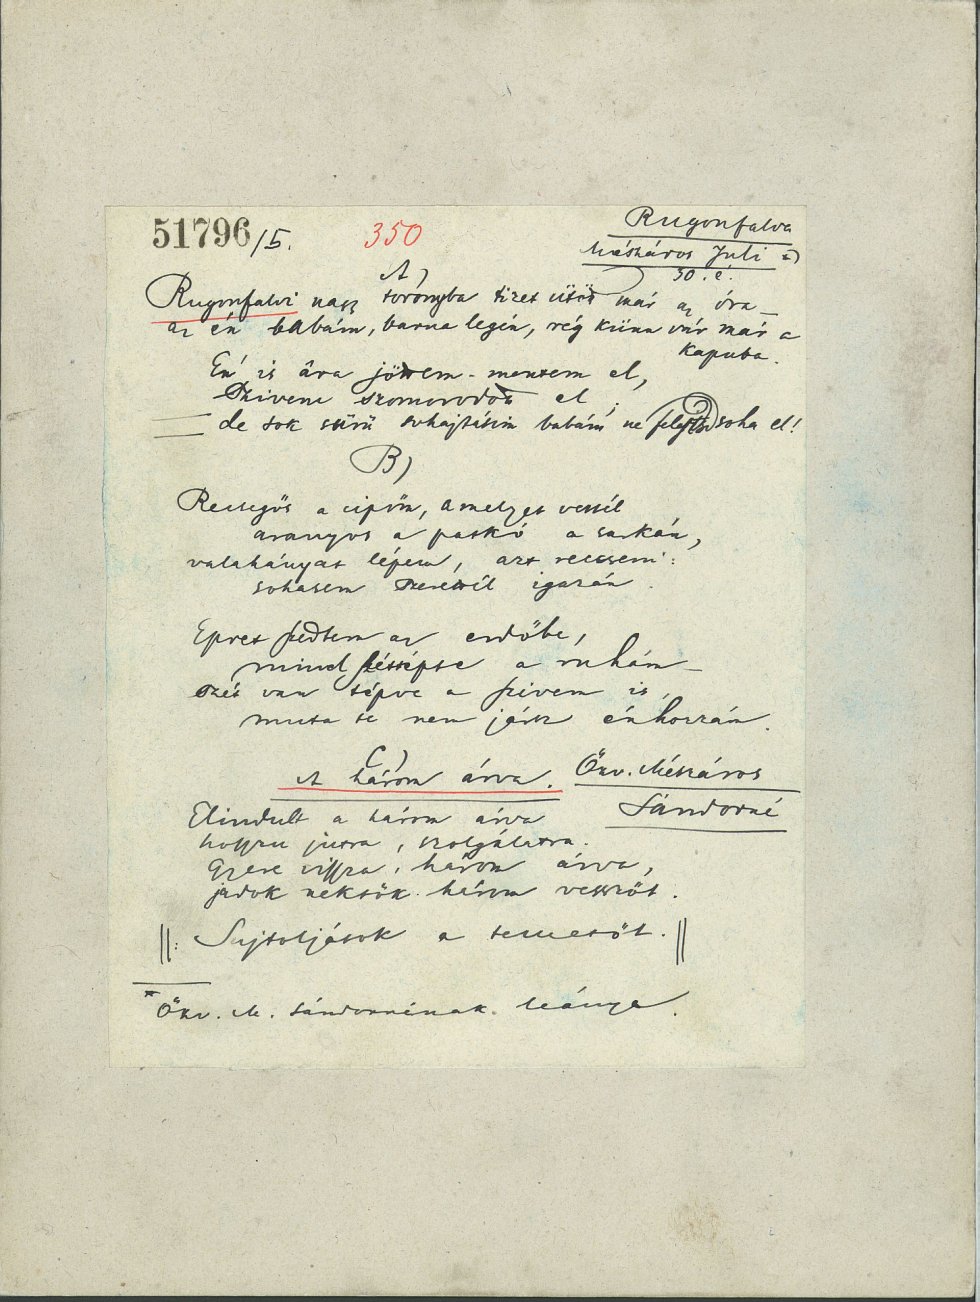 51796/5.
350
Rugonfalva
Mészáros Juli *)
30. é.
A)
Rugonfalvi nagy toronyba tizet ütöt már az óra –
az én babám, barna legén, rég künn vár már a
kapuba.
Én is óra jöttem-mentem el,
Szivem szomorodott el;
de sok sürü sohajtásim babám, ne felejtsd soha el!
B)
Recsegős a cipőm, amelyet vettél
aranyos a patkó a sarkán,
valahányat lépem, azt recsseni:
sohasem szerettél igazán.
Epret szedtem az erdőbe,
mind széttépte a ruhám –
szét van tépve a szivem is,
mióta te nem jársz énhozzám.
C)
A három árva.
Özv. Mészáros
Sándorné
Elindult a három árva
hosszu jutra, szolgálatra.
Gyere vissza, három árva,
jadok nektök három vesszőt.
||: Sujtoljátok a temetőt. ||
* Özv. M. Sándornénak leánya.